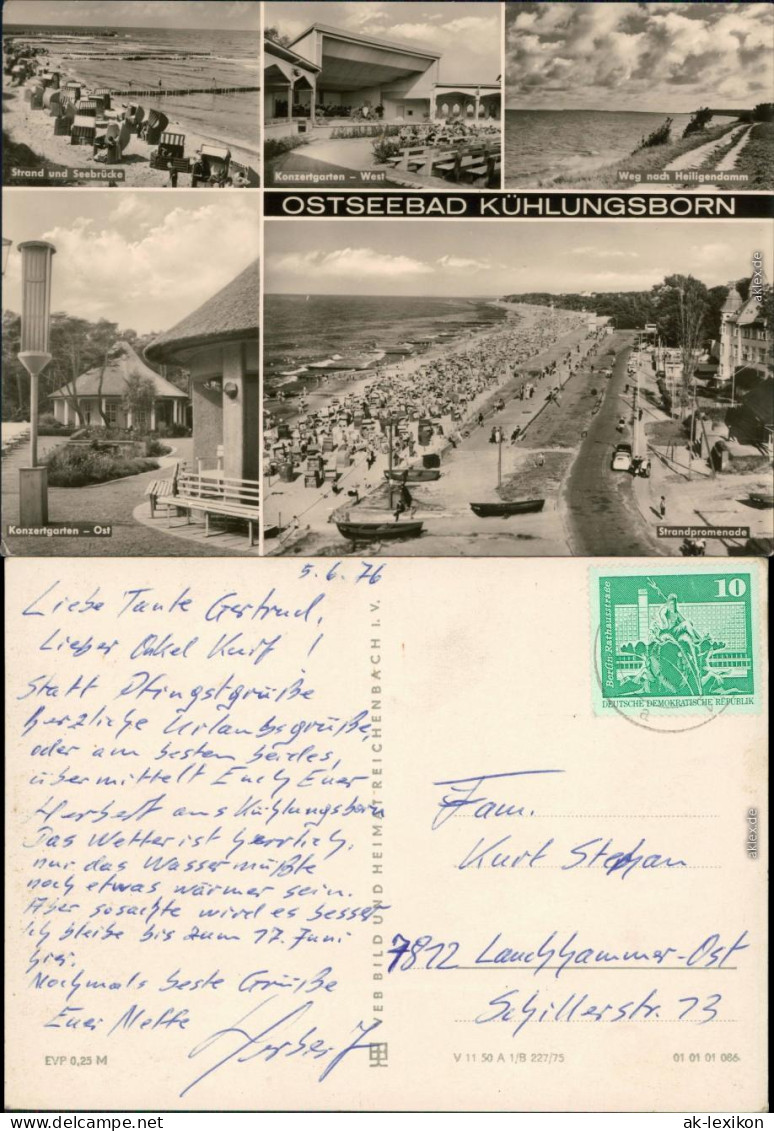 Strand und Seebrücke
Konzertgarten – West
Weg nach Heiligendamm
OSTSEEBAD KÜHLUNGSBORN
Konzertgarten – Ost
Strandpromenade
aklex.de
5.6.76
Liebe Tante Gertrud,
Lieber Onkel Kurt !
Statt Pfingstgrüße
herzliche Urlaubsgrüße,
oder am besten beides,
übermittelt Euch Euer
Herbert aus Kühlungsborn
Das Wetter ist herrlich,
nur das Wasser müßte
noch etwas wärmer sein.
Aber sosachte wird es besser
Ich bleibe bis zum 17. Juni
hier.
Nochmals beste Grüße
Euer Neffe
Herbert
EVP 0,25 M
VEB BILD UND HEIMAT REICHENBACH I. V.
10
Berlin, Rathausstraße
DEUTSCHE DEMOKRATISCHE REPUBLIK
Fam.
Kurt Stephan
7812 Lauchhammer-Ost
Schillerstr. 13
V 11 50 A 1/B 227/75
01 01 01 086
aklex.de
ak-lexikon
ak-lexikon.com